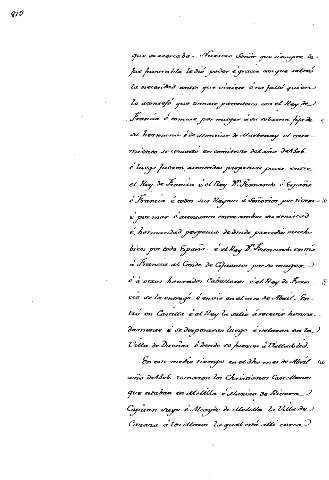 que se acercaba. Nuestro Señor que siempre le
fue favorable le dió poder é gracia con que salió
la necesidad antes que viniese é no faltó quien
le aconsejó que tomase parentesco con el Rey de
Francia é tomase por muger á su sobrina fija de
su hermana é de Monsiur de Narbona, el
casamiento se concertó en comienzo del año de 1506.
é luego fueron asentadas perpetuas paces entre
el Rey de Francia y el Rey Dn. Fernando é España
é Francia é todos sus Reynos é Señorios por tierra
é por mar é asentaron entre ambos su amistad
é hermandad perpetua de donde parecido mucho
bien por toda España. é el Rey Dn. Fernando envió
á Francia al Conde de Cifuentes por su muger
é á otros honrados Caballeros é el Rey de Francia
se la entregó é envió en el mes de Abril. Entró
en Castilla é el Rey la salió á recevir honradamente
é se desposaron luego é velaron en la
Villa de Dueñas é dende se fueron á Valladolid.
En este medio tiempo en el dho mes de Abril
año de 1506. tomaron los Christianos Castellanos
que estaban en Melilla é Marino de Ribera
Capitan suyo é Alcayde de Melilla la Villa de
Cazaza á los Moros la qual está allí cerca